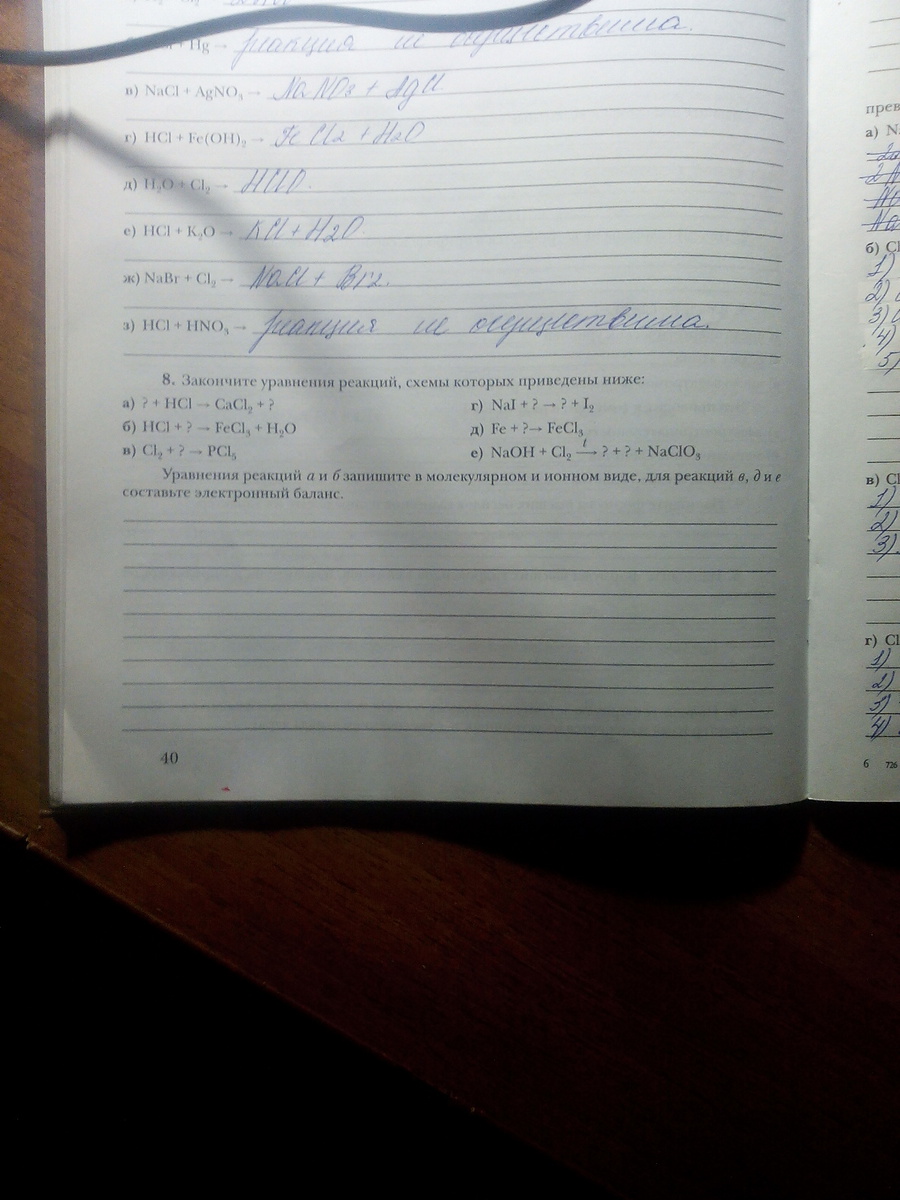 + Hg → реакция не осуществима.
в) NaCl + AgNO₃ → NaNO₃ + AgCl
г) HCl + Fe(OH)₂ → FeCl₂ + H₂O
д) H₂O + Cl₂ → HClO.
е) HCl + K₂O → KCl + H₂O.
ж) NaBr + Cl₂ → NaCl + Br₂.
з) HCl + HNO₃ → реакция не осуществима.
8. Закончите уравнения реакций, схемы которых приведены ниже:
а) ? + HCl → CaCl₂ + ?
б) HCl + ? → FeCl₃ + H₂O
в) Cl₂ + ? → PCl₅
г) NaI + ? → ? + I₂
д) Fe + ? → FeCl₃
е) NaOH + Cl₂ —t→ ? + ? + NaClO₃
Уравнения реакций а и б запишите в молекулярном и ионном виде, для реакций в, д и е
составьте электронный баланс.
40
прев
а) Na
2 N
Na
б) Cl
1)
2)
3)
4)
5)
в) Cl
1)
2)
3)
г) Cl
1)
2)
3)
4)
6 726